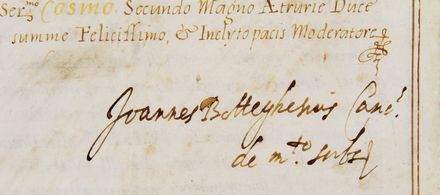 Ser.mo Cosmo. Secundo Magno Ætrurie Duce
summe Felicissimo, & Inclyto pacis Moderatore
Joannes Botteghesius Canc.s
de m.to subs